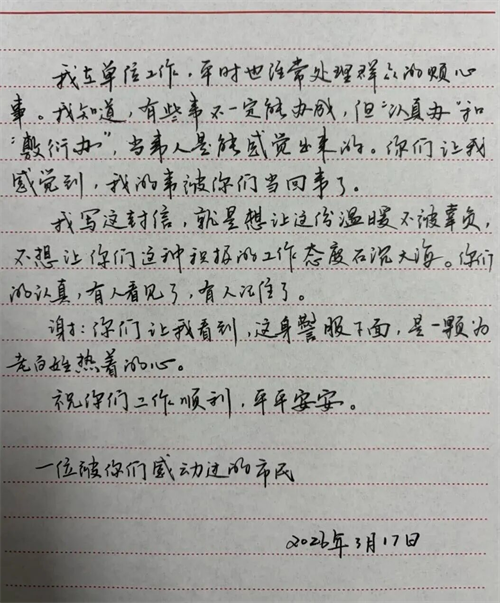 我在单位工作，平时也经常处理群众的烦心
事。我知道，有些事不一定能办成，但“认真办”和
“敷衍办”，当事人是能感觉出来的。你们让我
感觉到，我的事被你们当回事了。
我写这封信，就是想让这份温暖不被辜负，
不想让你们这种积极的工作态度石沉大海。你们
的认真，有人看见了，有人记住了。
谢谢你们让我看到，这身警服下面，是一颗为
老百姓热着的心。
祝你们工作顺利，平平安安。
一位被你们感动过的市民
2026年3月17日